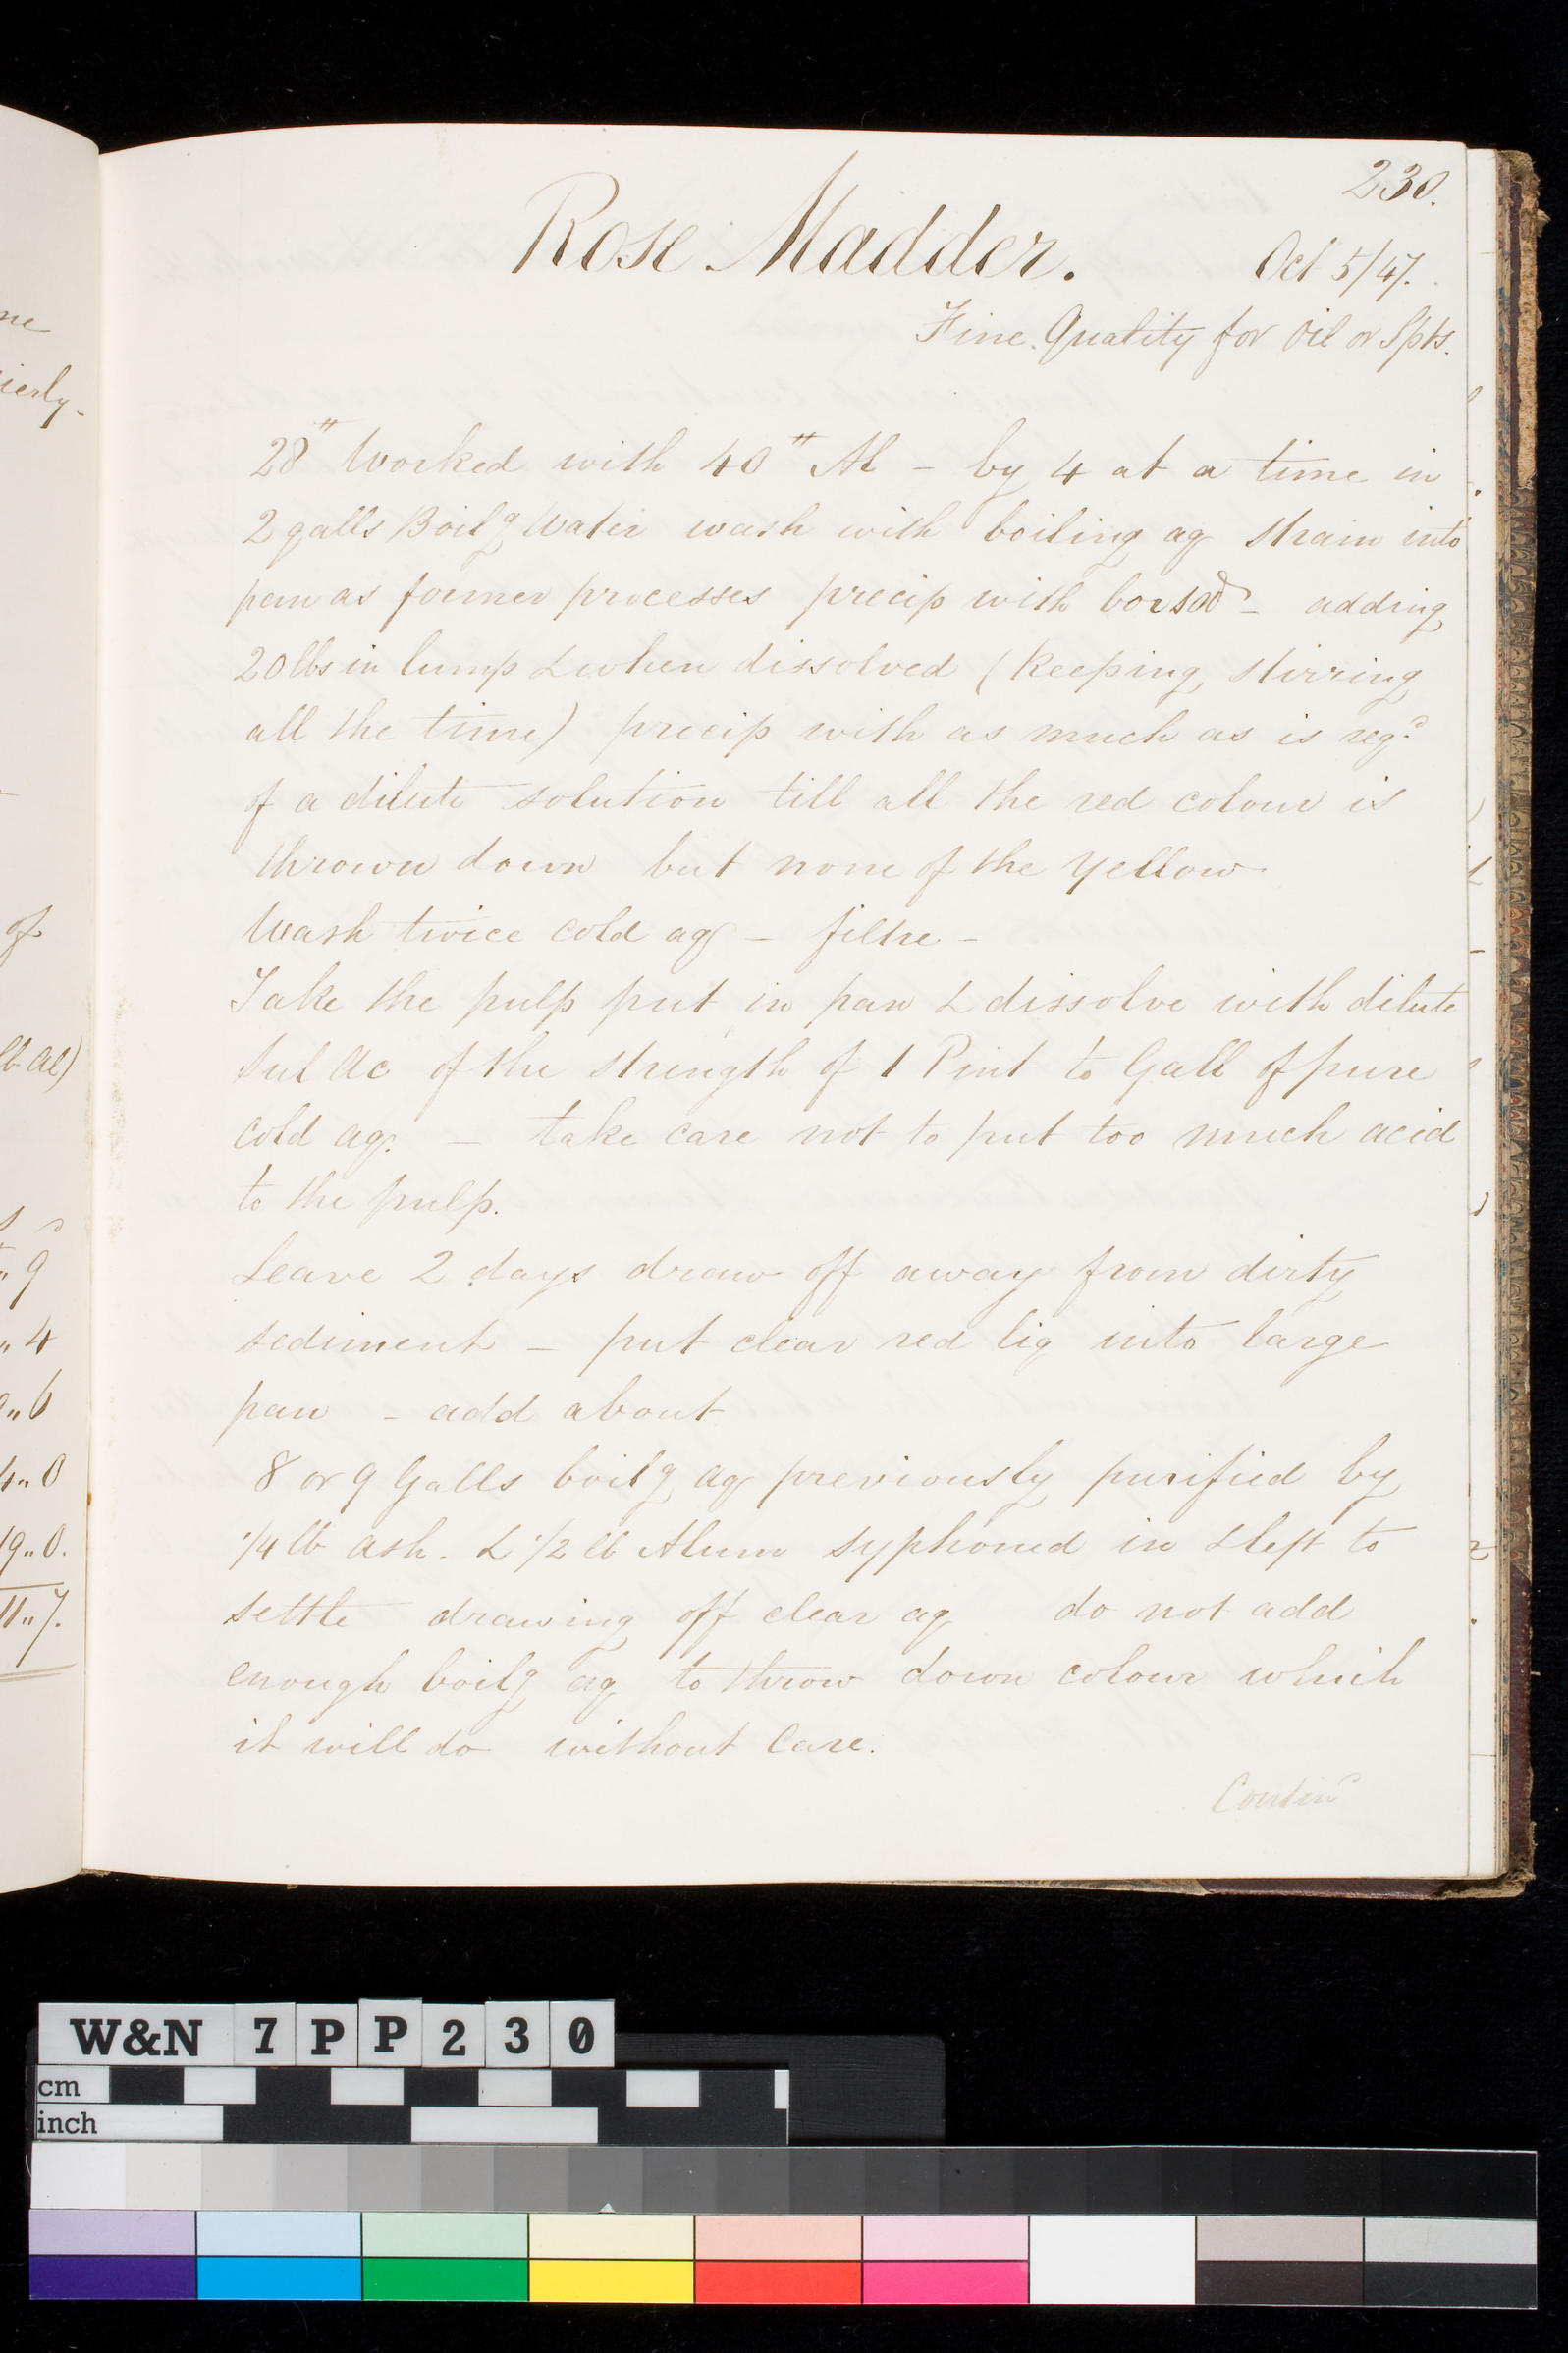 230.
Rose Madder.
Oct 5/47.
Fine Quality for Oil or Spts.
28" Worked with 40" Al - by 4 at a time in
2 galls Boilg Water wash with boiling aq strain into
pan as former processes precip with borsod - adding
20 lbs in lump & when dissolved (keeping stirring
all the time) precip with as much as is reqd
of a dilute solution till all the red colour is
thrown down but none of the yellow
Wash twice cold aq - filtre -
Take the pulp put in pan & dissolve with dilute
Sul Ac of the strength of 1 Pint to Gall of pure
cold aq. - take care not to put too much acid
to the pulp.
Leave 2 days draw off away from dirty
sediment - put clear red liq into large
pan - add about
8 or 9 Galls boilg aq previously purified by
1/4 lb ash. & 1/2 lb Alum syphoned in & left to
settle drawing off clear aq do not add
enough boilg aq to throw down colour which
it will do without care.
Contind
ne
ierly-
of
lb al)
" 9
" 4
" 6
4 " 0
19 " 0.
11 " 7.
W&N 7PP230
cm
inch